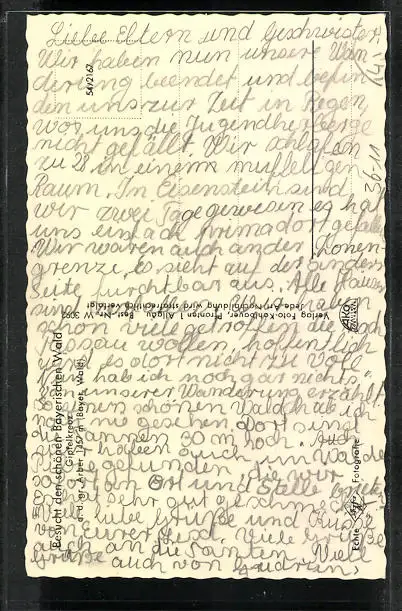 Liebe Eltern und Geschwister!
Wir haben nun unsere Wan-
derung beendet und befin
den uns zur Zeit in Regen,
wo uns die Jugendherberge
nicht gefällt. Wir schlafen
zu 28 in einem muffeligen
Raum. In Eisenstein sind
wir zwei Tage gewesen es hat
uns einfach prima dort gefallen
Wir waren auch an der Zonen-
grenze, es sieht auf der andern
Seite furchtbar aus. Alle Häuser
sind
schon viele getroffen die nach
Passau wollen, hoffentlich
wird es dort nicht zu voll
hab ich noch gar nichts
unserer Wanderung erzählt
schönen Wald hab ich
nie gesehen dort sind
Tannen 50 m hoch. Auch
haben auch im Walde
gefunden die wir
an Ort und Stelle
sehr gut
Liebe Grüße und Küsse
Eurer Viele Grüße
auch an die Viele
Grüße auch von
54/2167
39-11
Besucht den schönen Bayerischen Wald
Gipfelkreuz
a. d. gr. Arber 1457 m (Bayer. Wald)
Verlag Foto-Kohlbauer, Pfronten i. Allgäu Best.-Nr. W 3092
Jede Art Nachbildung wird strafrechtlich verfolgt
Echte Fotografie